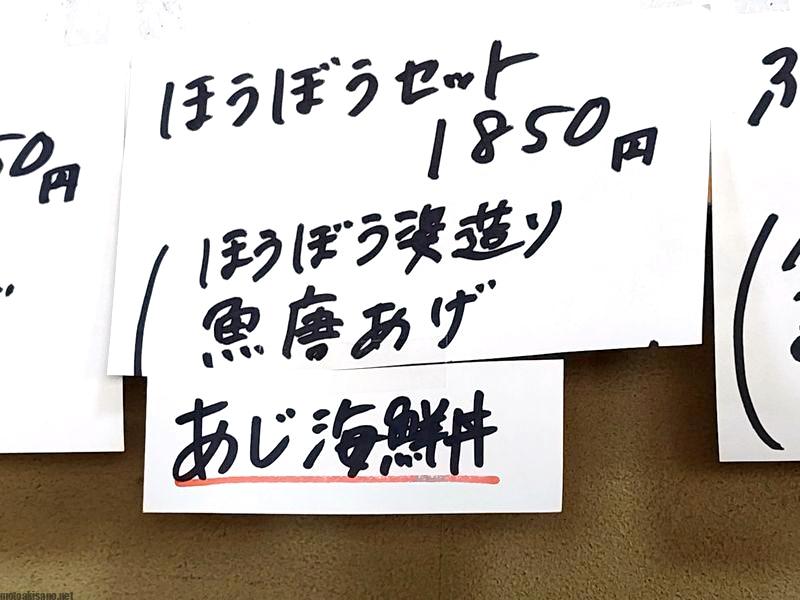 ほうぼうセット
1850円
(ほうぼう姿造り
魚唐あげ
あじ海鮮丼
50円
motoakisano.net